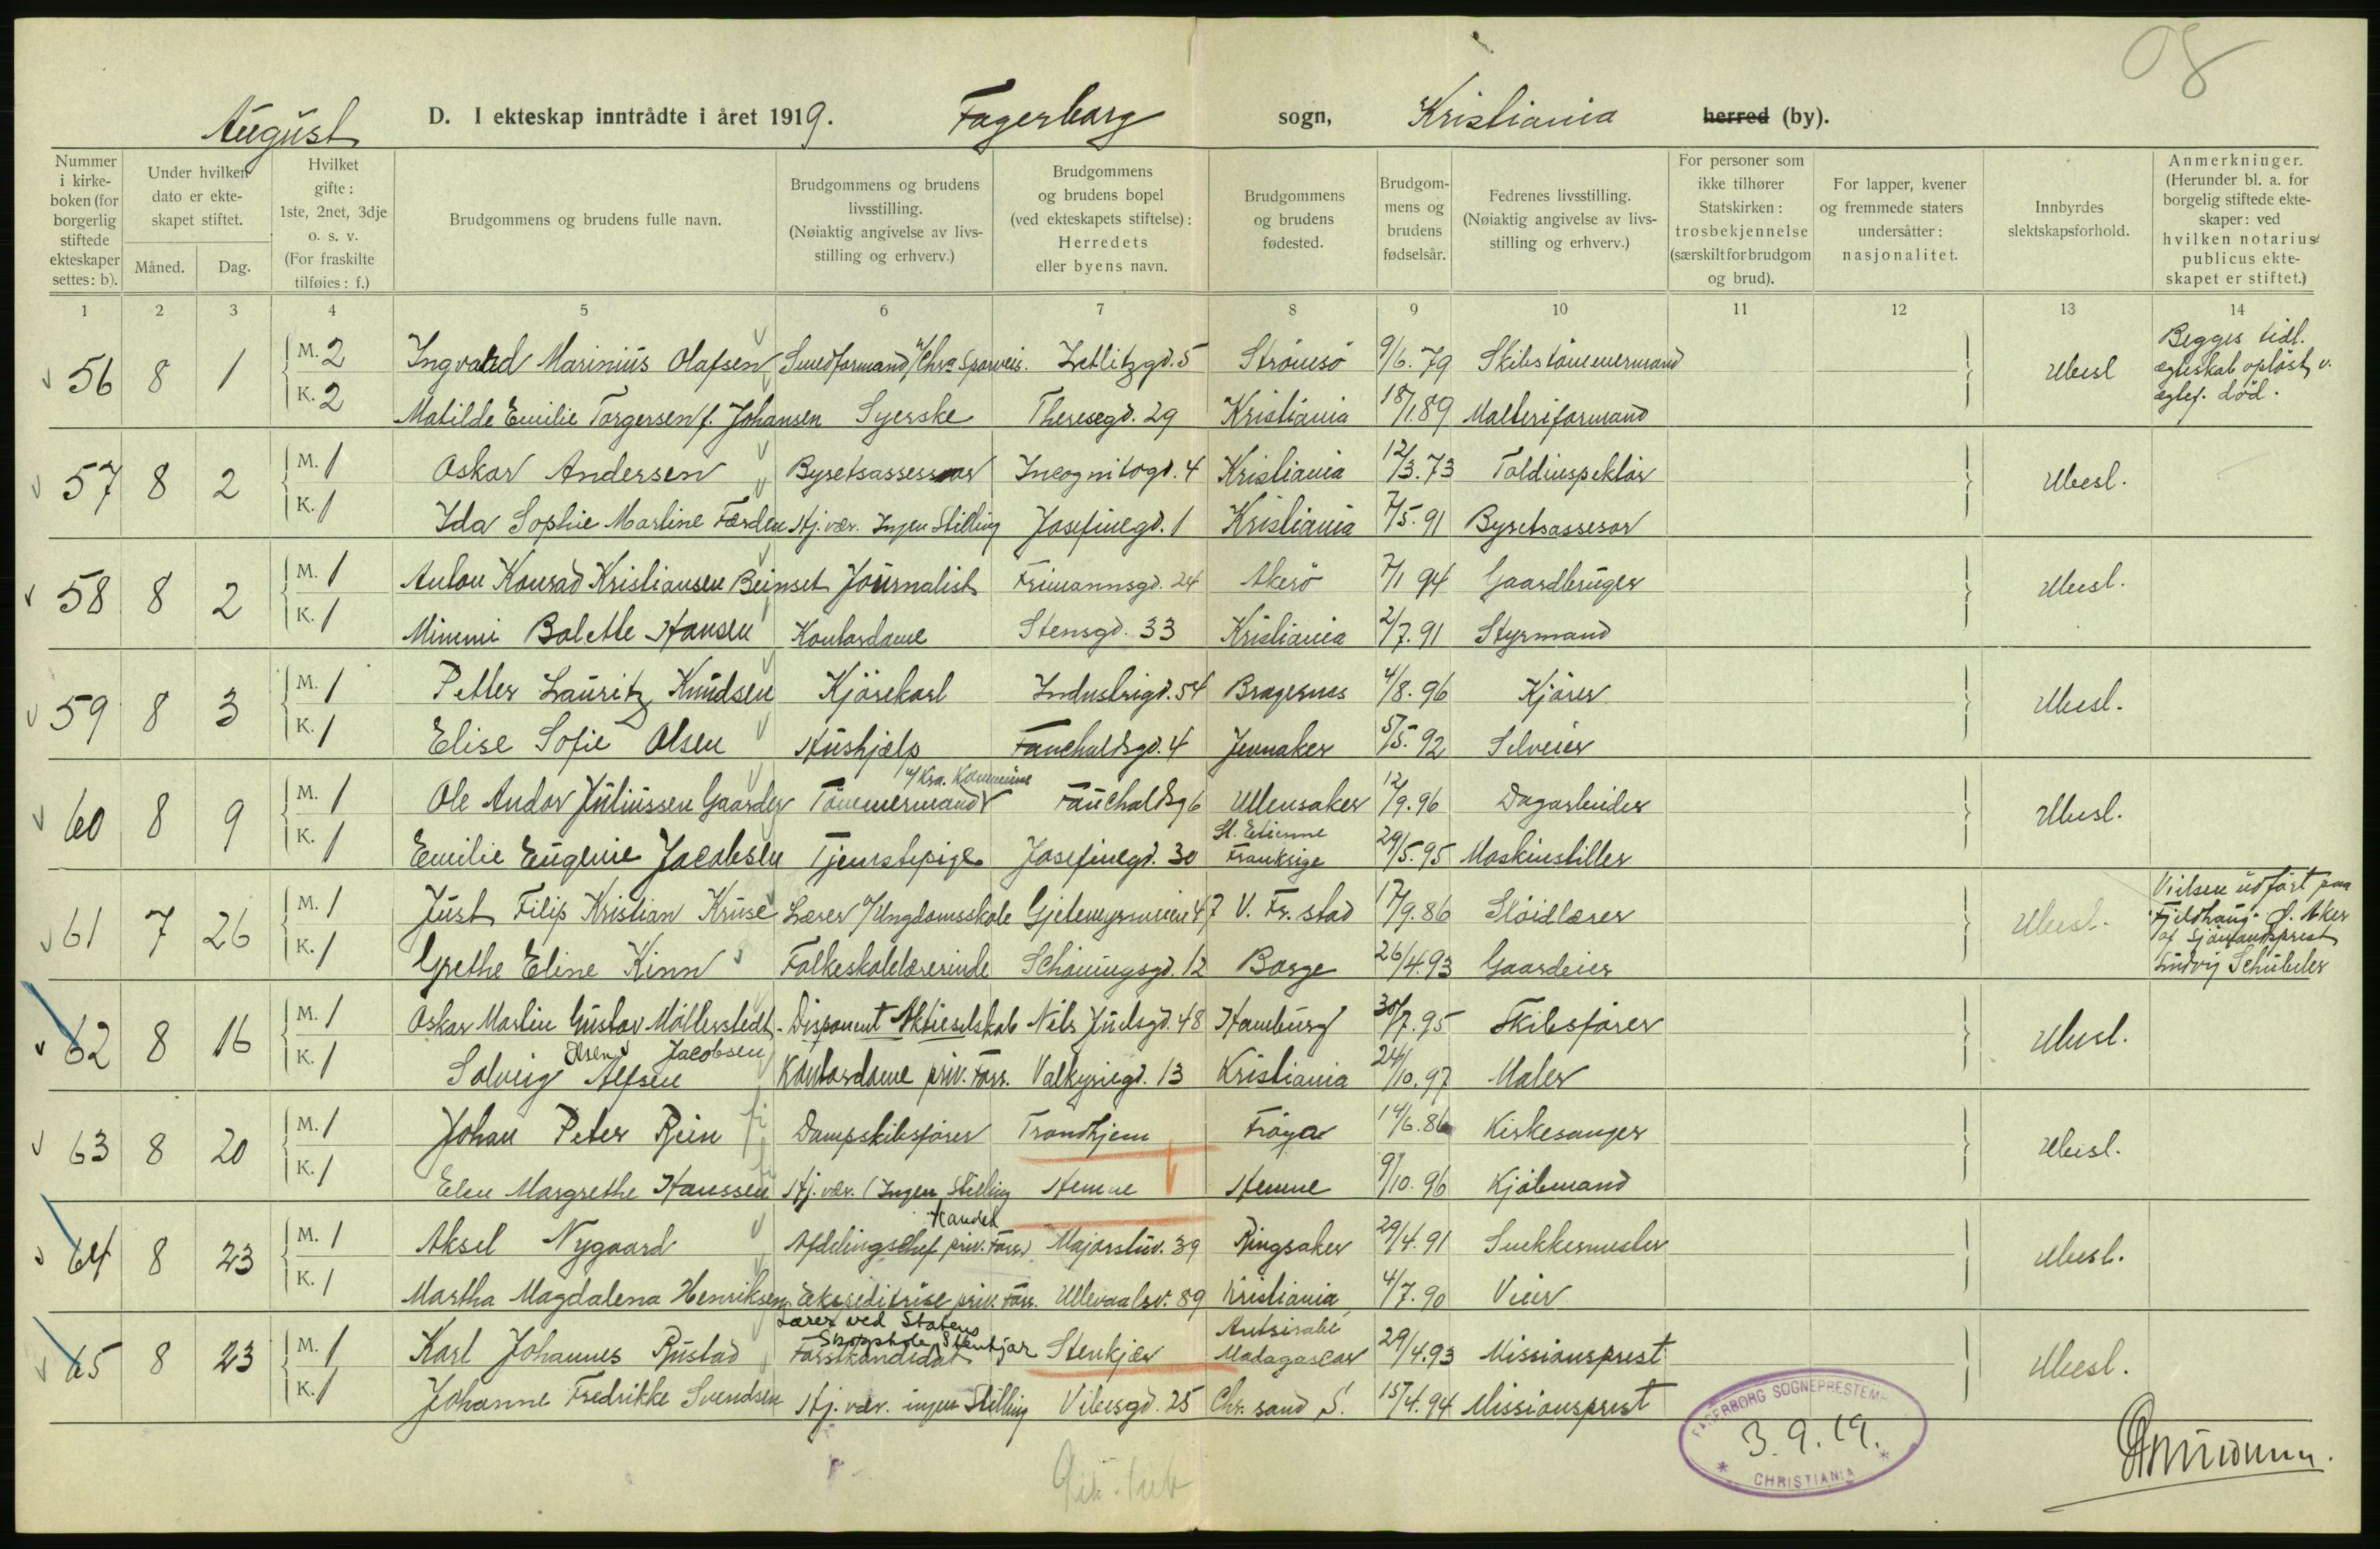 August D. I ekteskap inntrådte i året 1919. Fagerborg sogn, Kristiania herred (by).
Nummer i kirkeboken (for borgerlig stiftede ekteskaper settes: b).
Under hvilken dato er ekteskapet stiftet.
Måned. Dag.
Hvilket gifte: 1ste, 2net, 3dje o. s. v. (For fraskilte tilføies: f.)
Brudgommens og brudens fulle navn.
Brudgommens og brudens livsstilling. (Nøiaktig angivelse av livsstilling og erhverv.)
Brudgommens og brudens bopel (ved ekteskapets stiftelse): Herredets eller byens navn.
Brudgommens og brudens fødested.
Brudgommens og brudens fødselsår.
Fedrenes livsstilling. (Nøiaktig angivelse av livsstilling og erhverv.)
For personer som ikke tilhører Statskirken: trosbekjennelse (særskilt for brudgom og brud).
For lapper, kvener og fremmede staters undersåtter: nasjonalitet.
Innbyrdes slektskapsforhold.
Anmerkninger. (Herunder bl. a. for borgelig stiftede ekteskaper: ved hvilken notarius publicus ekteskapet er stiftet.)
1 2 3 4 5 6 7 8 9 10 11 12 13 14
56 8 1 M. 2 Ingvald Marinius Olafsen Smedformand v/Chra Sporvei. Zetlitzgd. 5 Strömsö 9/6. 79 Skibstömmermand Ubesl Begges tidl. egteskab opløst v. egtef. död.
K. 2 Matilde Emilie Torgersen f. Johansen Syerske Theresegd. 29 Kristiania 18/1 89 Malteriformand
57 8 2 M. 1 Oskar Andersen Byretsassessor Incognitogd. 4 Kristiania 12/3. 73 Toldinspektör Ubesl.
K. 1 Ida Sophie Martine Færden Hj. vær. Ingen Stilling Josefinegd. 1 Kristiania 7/5. 91 Byretsassesor
58 8 2 M. 1 Anton Konrad Kristiansen Beinset Journalist Frimannsgd. 24 Akerö 7/1 94 Gaardbruger Ubesl.
K. 1 Mimmi Bolette Hansen Kontordame Stensgd. 33 Kristiania 2/7. 91 Styrmand
59 8 3 M. 1 Petter Lauritz Knudsen Kjörekarl Industrigd. 54 Bragernes 4/8. 96 Kjörer Ubesl.
K. 1 Elise Sofie Olsen Hushjælp Fauchaldsgd. 4 Jevnaker 5/5. 92 Selveier
60 8 9 M. 1 Ole Andor Juliussen Gaarder Tömmermand v/ Kra. Kommune Fauchaldsg 6 Ullensaker 12/9. 96 Dagarbeider Ubesl.
K. 1 Emilie Eugenie Jacobsen Tjenestepige Josefinegd. 30 St. Etienne Frankrige 29/5. 95 Maskinstiller
61 7 26 M. 1 Just Filip Kristian Kruse Lærer v/ Ungdomsskole Gjetemyrsveien 47 V. Fr. stad 17/9. 86 Slöidlærer Ubesl. Vielsen udført paa "Fjeldhaug" Ø. Aker af Sjömandsprest Ludvig Schübeler
K. 1 Grethe Eline Kinn Folkeskolelærerinde Schöningsgd. 12 Borge 26/4. 93 Gaardeier
62 8 16 M. 1 Oskar Martin Gustav Möllerstedt Disponent Aktieselskab Nels Juelsgd. 48 Hamburg 30/7. 95 Skibsförer Ubesl.
K. 1 Solveig Olsen Alfsen Jacobsen Kontordame priv. Forr. Valkyriegd. 13 Kristiania 24/10. 97 Maler
63 8 20 M. 1 Johan Peter Rein Dampskibsförer Trondhjem Fröya 14/6. 86 Kirkesanger Ubesl.
K. 1 Elen Margrethe Hanssen Hj. vær. (Ingen Stilling Hemne Hemne 9/10. 96 Kjöbmand
64 8 23 M. 1 Aksel Nygaard Afdelingschef priv. Handel Forr. Majorstuv. 39 Ringsaker 29/4. 91 Snekkermester Ubesl.
K. 1 Martha Magdalena Henriksen Ekspeditrise priv. Forr. Ullevaalsv. 89 Kristiania 4/7. 90 Veier
65 8 23 M. 1 Karl Johannes Rustad Lærer ved Statens Skogskole Stenkjær Forstkandidat Stenkjær Antsirabé Madagascar 29/4. 93 Missionsprest Ubesl.
K. 1 Johanne Fredrikke Svendsen Hj. vær. ingen Stilling Vibesgd. 25 Chr. sand S. 15/4. 94 Missionsprest
FAGERBORG SOGNEPRESTEMB
3.9.19.
CHRISTIANIA